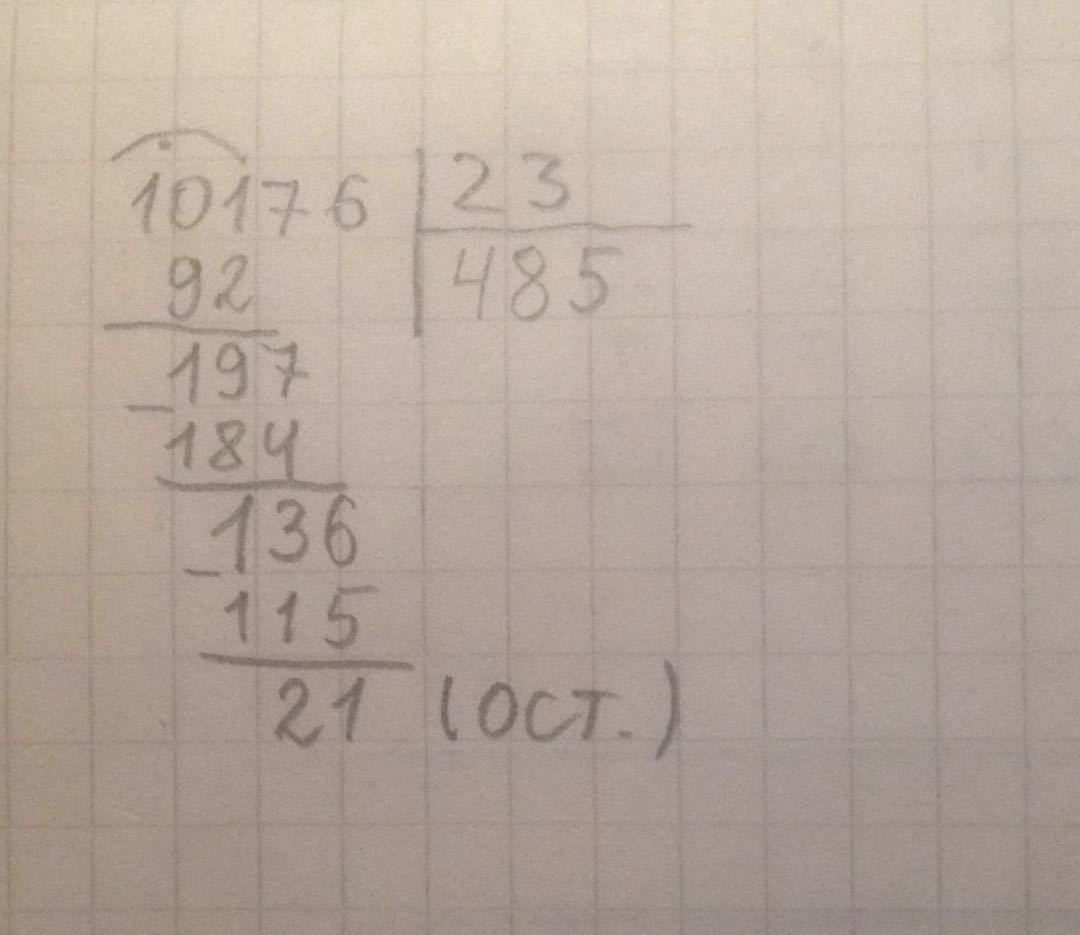 10176 | 23
92 | 485
197
184
136
115
21 (ост.)